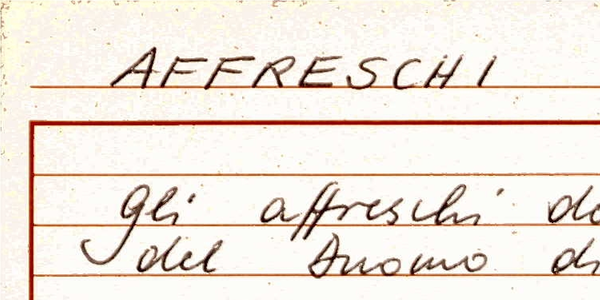 AFFRESCHI
gli affreschi de
del Duomo di